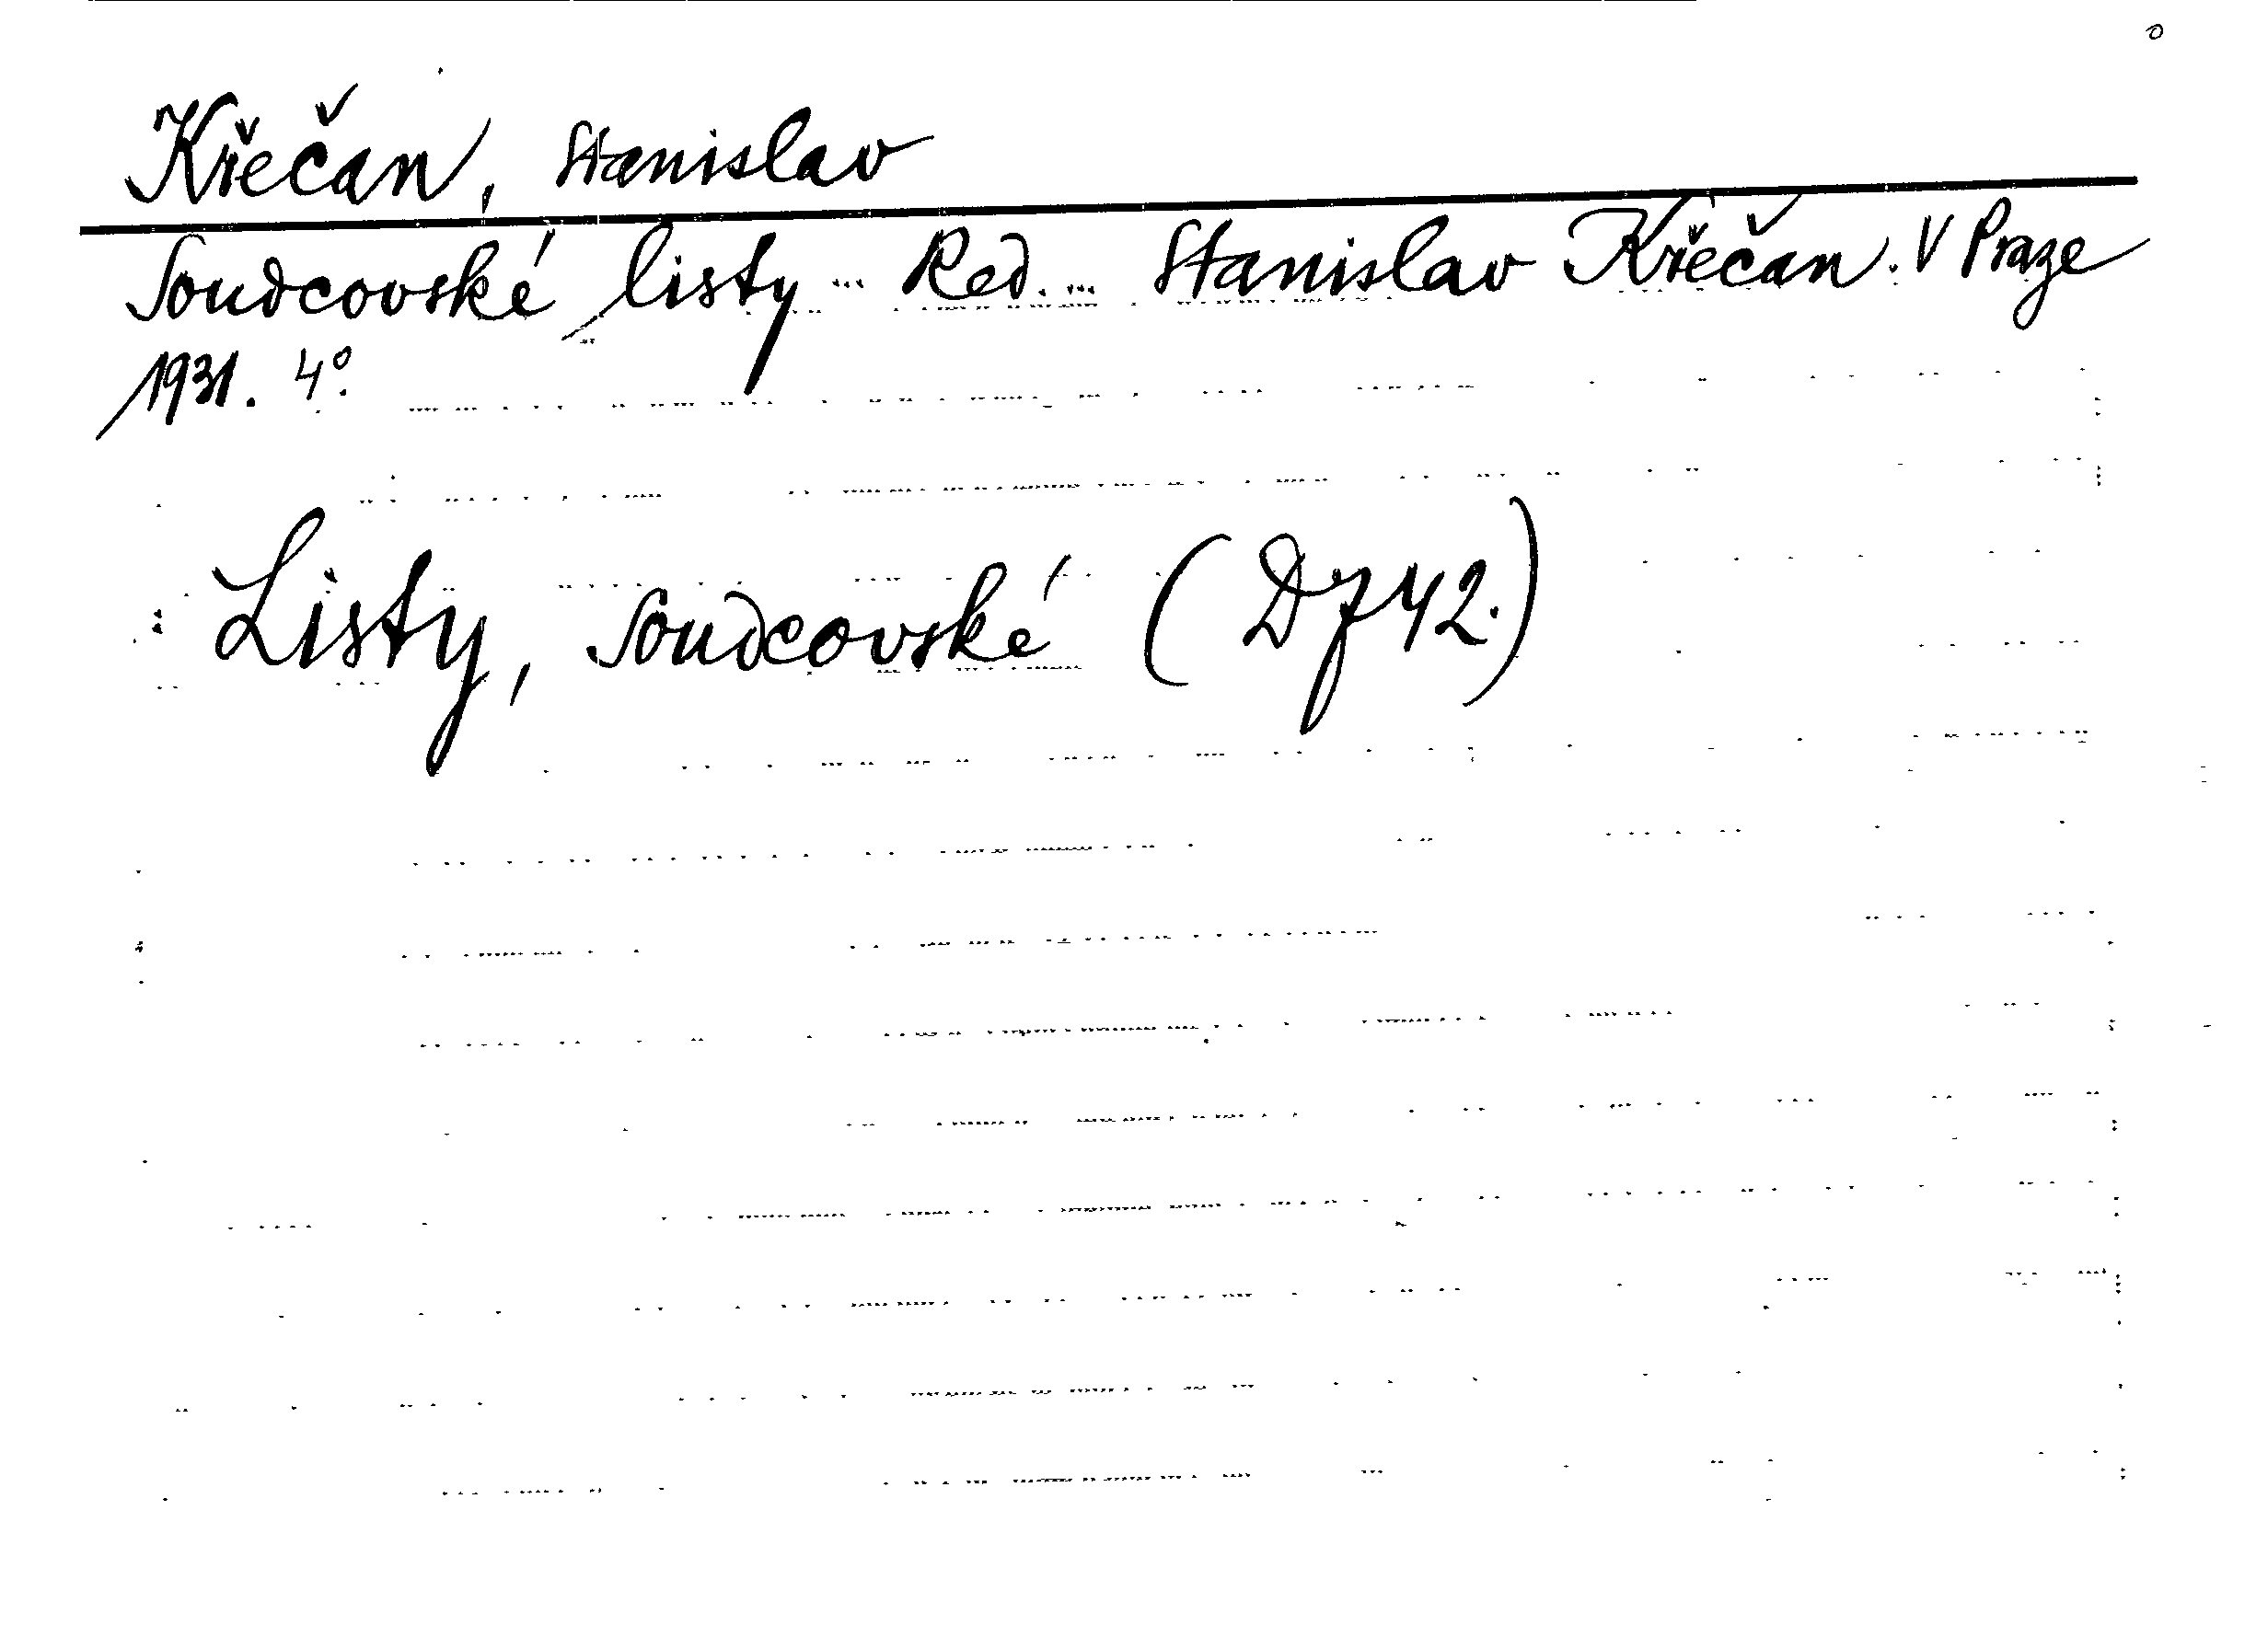 Křečan, Stanislav
Soudcovské listy ... Red. ... Stanislav Křečan. V Praze
1931. 4°.
Listy, soudcovské (D J 42.)